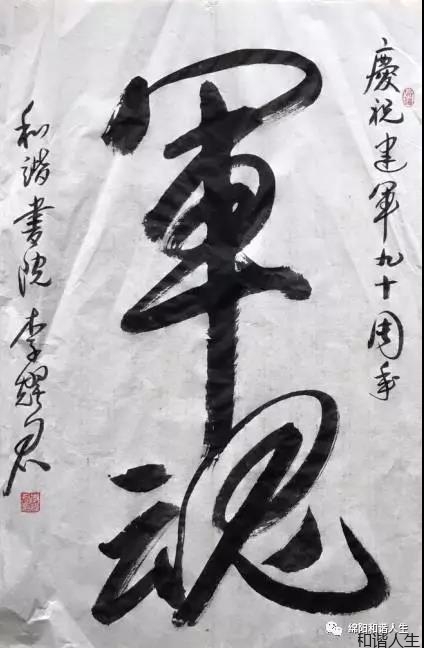 慶祝建军九十周年
軍魂
和谐書院 李耀
绵阳和谐人生
和谐人生